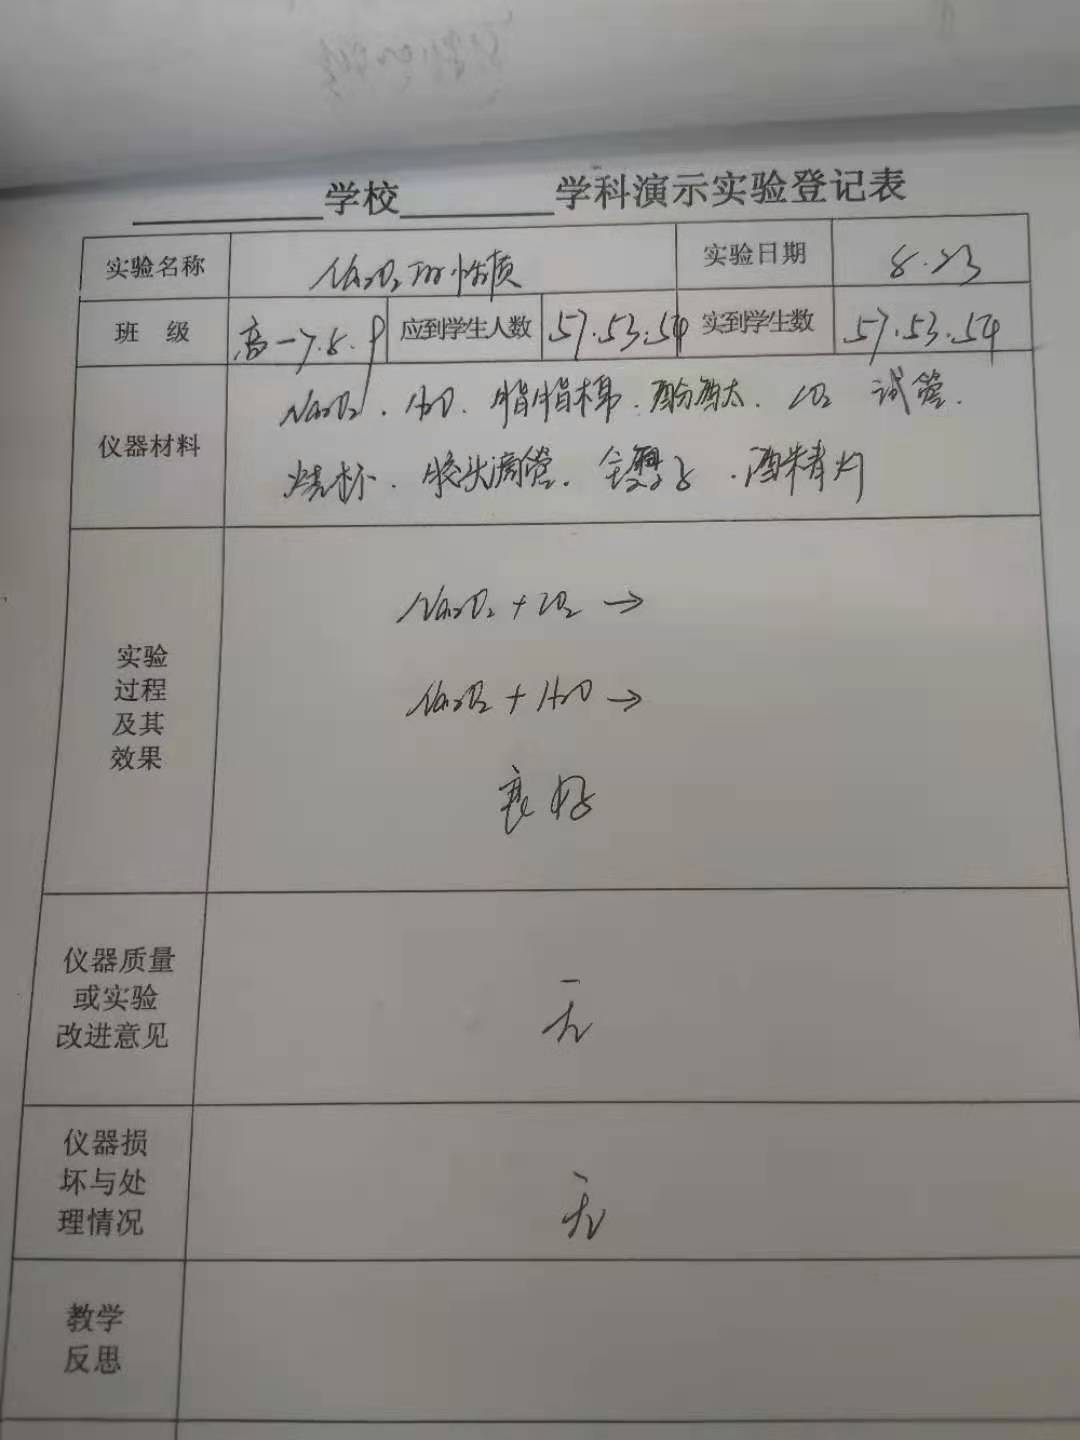 学校 学科演示实验登记表
实验名称 Na2O2的性质 实验日期 8.23
班 级 高一7.8.9 应到学生人数 57.53.54 实到学生数 57.53.54
仪器材料 Na2O2. H2O. 脂脂棉. 酚酞. CO2 试管.
烧杯. 胶头滴管. 镊子. 酒精灯
实验
过程
及其
效果
Na2O2 + CO2 →
Na2O2 + H2O →
良好
仪器质量
或实验
改进意见
无
仪器损
坏与处
理情况
无
教学
反思